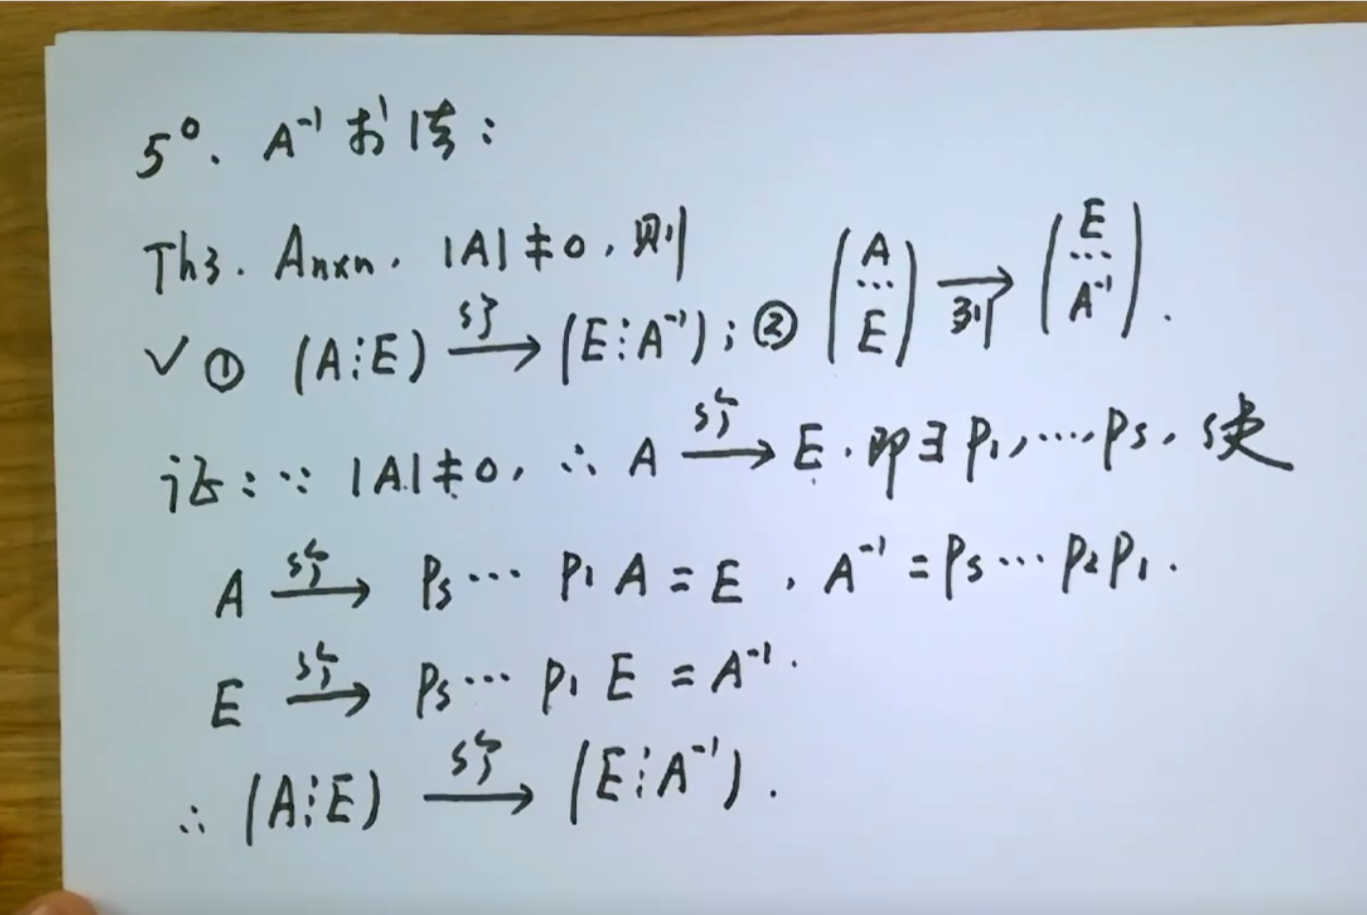 5°. A⁻¹求法：
Th3. Aₙₓₙ. |A|≠0, 则
✓ ① (A⋮E) —行→ (E⋮A⁻¹); ② (A ⋯ E) —列→ (E ⋯ A⁻¹).
证：∵ |A|≠0, ∴ A —行→ E. 即∃ P₁, ⋯, Pₛ, 使
A —行→ Pₛ ⋯ P₁ A = E, A⁻¹ = Pₛ ⋯ P₂P₁.
E —行→ Pₛ ⋯ P₁ E = A⁻¹.
∴ (A⋮E) —行→ (E⋮A⁻¹).